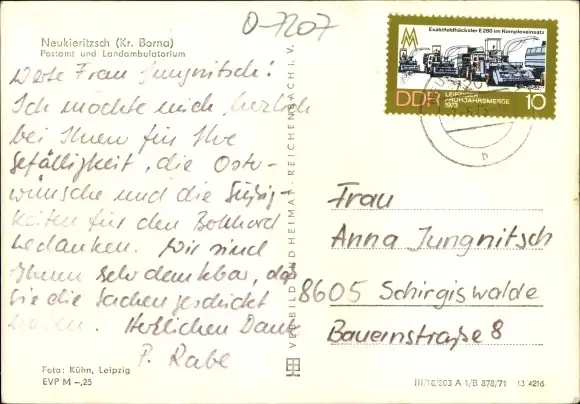 O-7207
Neukieritzsch (Kr. Borna)
Postamt und Landambulatorium
Werte Frau Jungnitsch!
Ich möchte mich herzlich
bei Ihnen für Ihre
Gefälligkeit, die Oster-
wünsche und die Süßig-
keiten für den
bedanken. Wir sind
Ihnen sehr dankbar, daß
Sie die Sachen geschickt
haben. Herzlichen Dank
P. Rabe
Foto: Kühn, Leipzig
EVP M -,25
VERLAG BILD UND HEIMAT REICHENBACH I. V.
Exaktfeldhäcksler E 280 im Komplexeinsatz
DDR LEIPZIGER
FRÜHJAHRSMESSE
1973 10
Frau
Anna Jungnitsch
8605 Schirgiswalde
Bauernstraße 8
III/18/203 A 1/B 878/71 13 4216